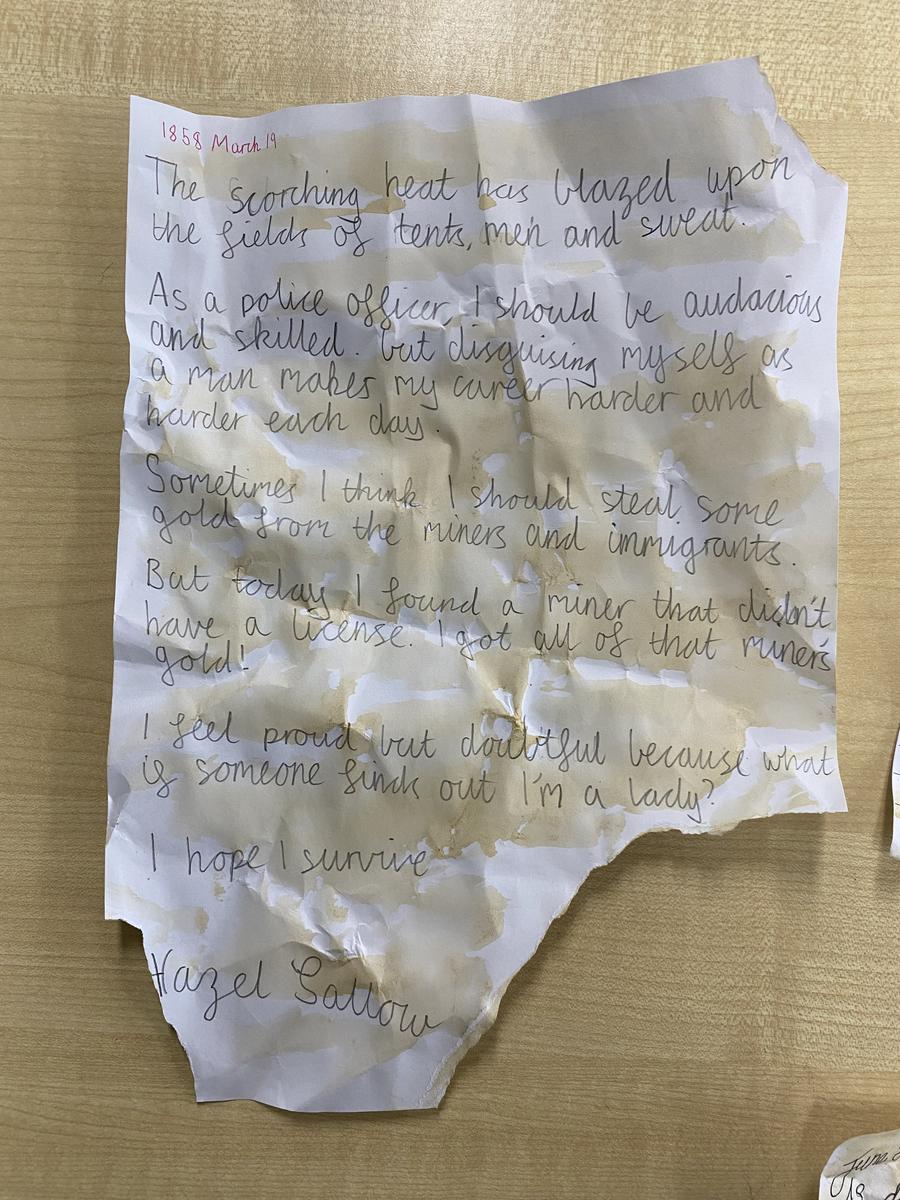 1858 March 19
The scorching heat has blazed upon
the fields of tents, men and sweat.
As a police officer, I should be audacious
and skilled. but disguising myself as
a man makes my career harder and
harder each day.
Sometimes I think I should steal some
gold from the miners and immigrants.
But today I found a miner that didn't
have a license. I got all of that miner's
gold!
I feel proud but doubtful because what
if someone finds out I'm a lady?
I hope I survive
Hazel Sallow
June